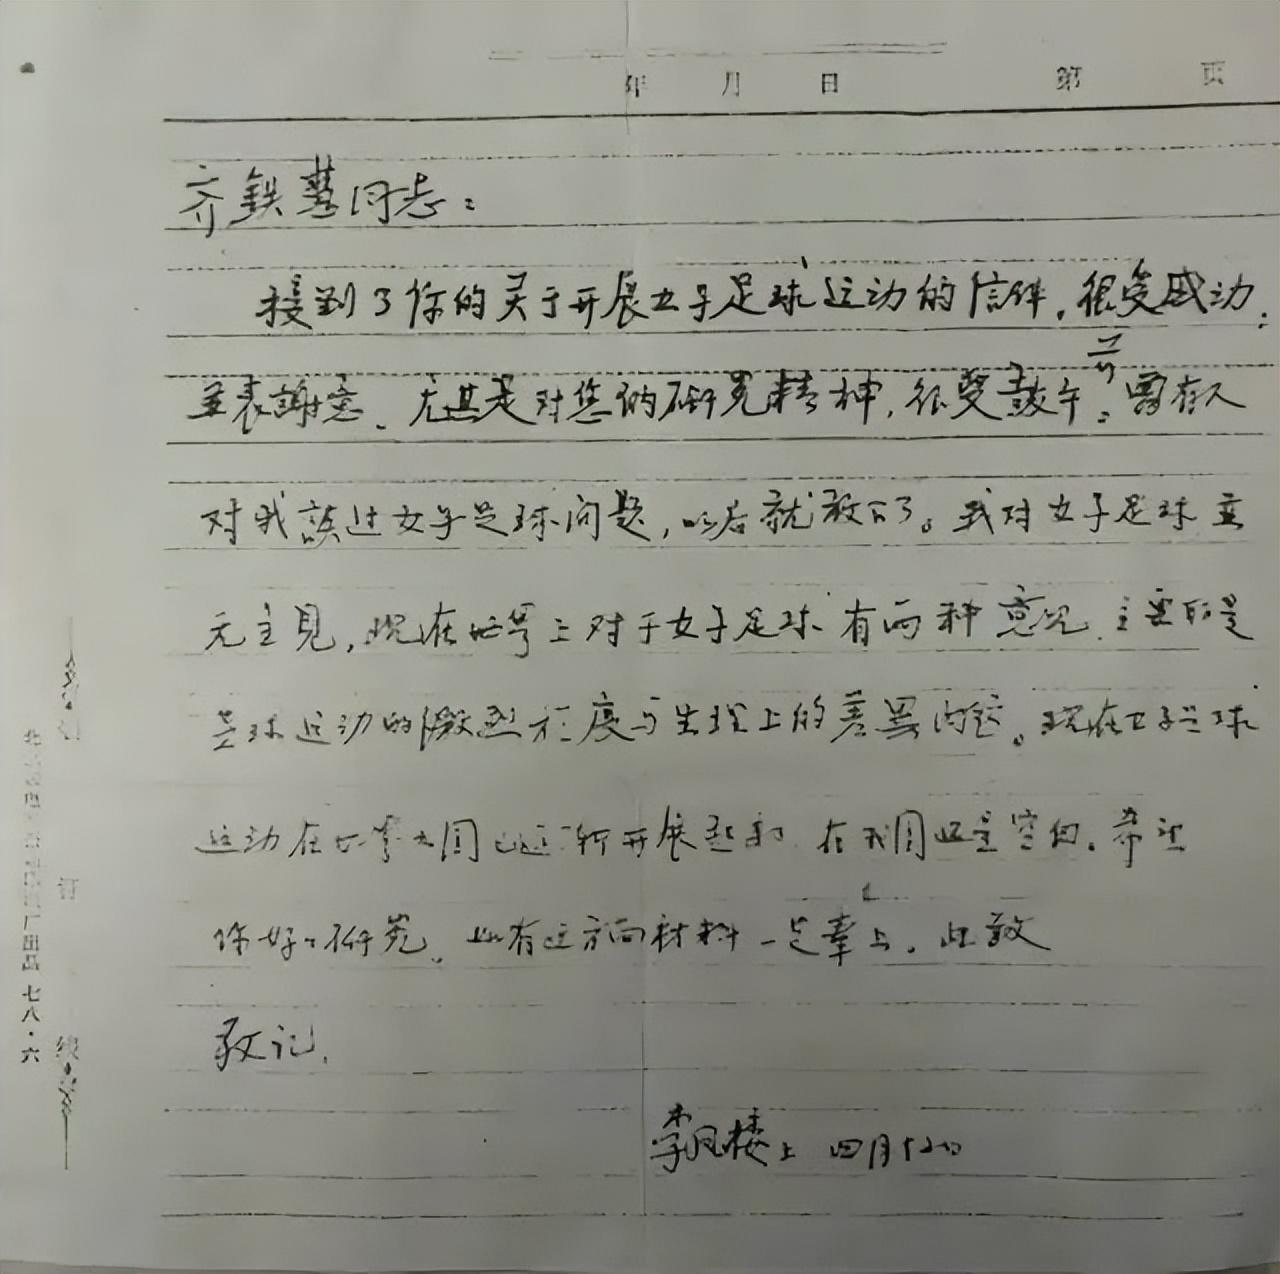 年 月 日 第 页
齐铁慧同志：
接到了你的关于开展女子足球运动的信件，很受感动，
并表謝意、尤其是对您的研究精神，很受鼓午。曾有人
对我談过女子足球问题，以后就散了。我对女子足球并
无主見，现在世界上对于女子足球有两种意见，主要的是
足球运动的激烈程度与生理上的差異问题。现在女子足球
运动在世界各国已逐渐开展起来，在我国还是空白。希望
你好好研究，如有这方面材料一定奉上。此致
敬礼，
李凤楼上 四月
订
线
七八·六